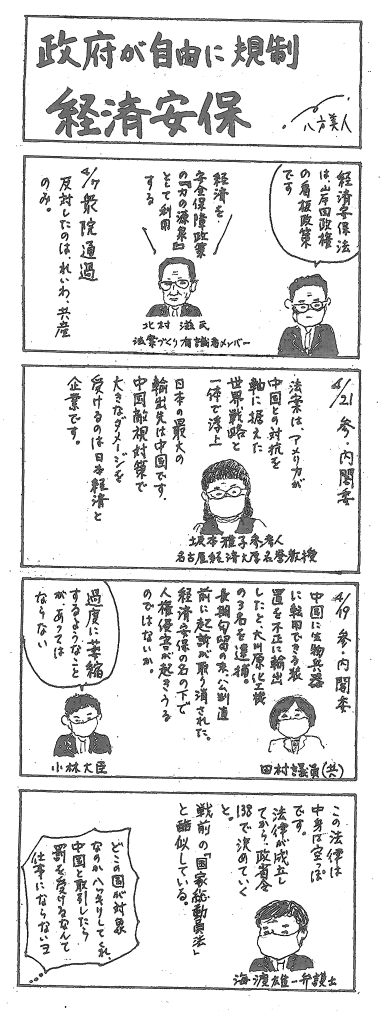 政府が自由に規制
経済安保
八方美人
経済安保法
は、岸田政権
の看板政策
です
経済を、
安全保障政策
の『力の源泉』
として利用
する
北村 滋氏
法案づくり有識者メンバー
4/7 衆院通過
反対したのは、れいわ、共産
のみ。
4/21 参・内閣委
法案は、アメリカが
中国との対抗を
軸に据えた
世界戦略と
一体で浮上
日本の最大の
輸出先は中国です。
中国敵視対策で
大きなダメージを
受けるのは日本経済と
企業です。
坂本雅子参考人
名古屋経済大学名誉教授
4/19 参・内閣委
中国に生物兵器
に転用できる装
置を不正に輸出
したと、大川原化工機
の3名を逮捕。
長期勾留の末、公判直
前に起訴が取り消された。
経済安保の名の下で
人権侵害が起きうる
のではないか。
田村議員(共)
過度に萎縮
するようなこと
が、あっては
ならない
小林大臣
この法律は
中身は空っぽ
です。
法律が成立し
てから、政省令
138で決めていく
と。
戦前の「国家総動員法」
と酷似している。
海渡雄一弁護士
どこの国が対象
なのかハッキリしてくれ、
中国と取引したら
罰を受けるなんて
仕事にならないヨ